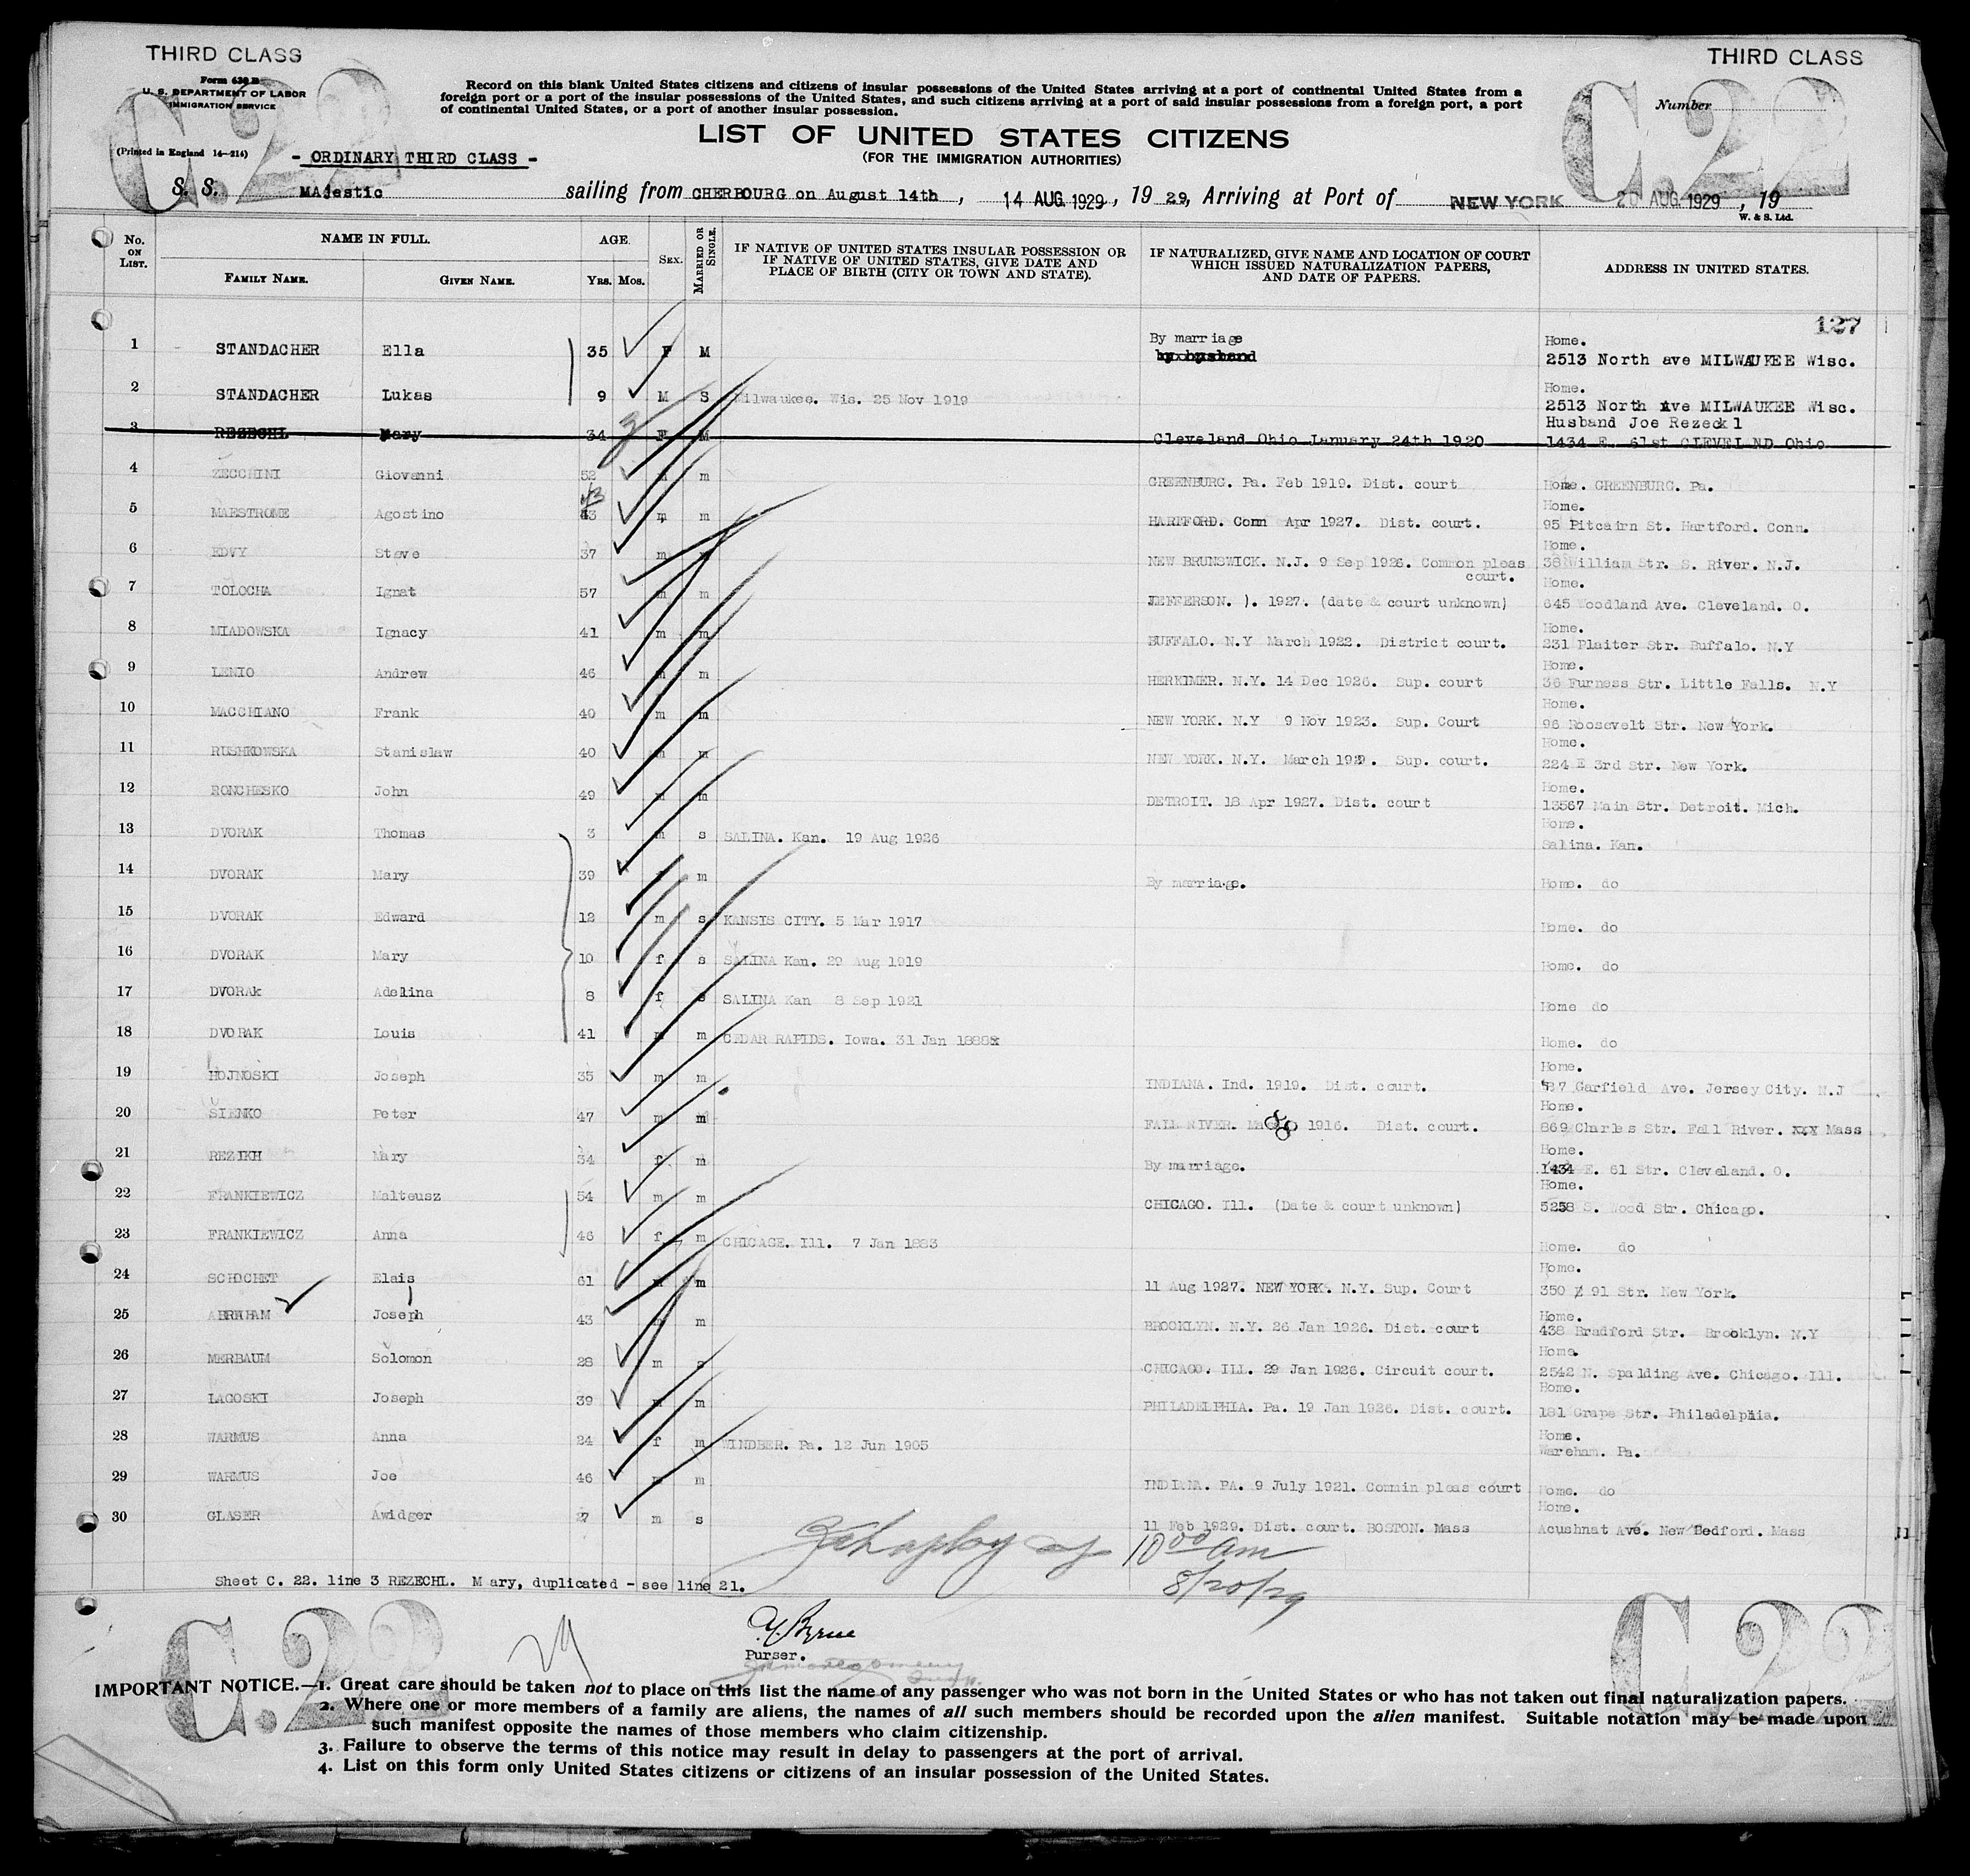 THIRD CLASS
THIRD CLASS
Form 630 B
U. S. DEPARTMENT OF LABOR
IMMIGRATION SERVICE
C.22
C.22
(Printed in England 14—214)
Record on this blank United States citizens and citizens of insular possessions of the United States arriving at a port of continental United States from a
foreign port or a port of the insular possessions of the United States, and such citizens arriving at a port of said insular possessions from a foreign port, a port
of continental United States, or a port of another insular possession.
Number
LIST OF UNITED STATES CITIZENS
(FOR THE IMMIGRATION AUTHORITIES)
- ORDINARY THIRD CLASS -
S. S. MAjestic sailing from CHERBOURG on August 14th, 14 AUG 1929, 19 29, Arriving at Port of NEW YORK 20 AUG 1929, 19
W. & S. Ltd.
No. ON LIST. NAME IN FULL. AGE. SEX. MARRIED OR SINGLE. IF NATIVE OF UNITED STATES INSULAR POSSESSION OR IF NATIVE OF UNITED STATES, GIVE DATE AND PLACE OF BIRTH (CITY OR TOWN AND STATE). IF NATURALIZED, GIVE NAME AND LOCATION OF COURT WHICH ISSUED NATURALIZATION PAPERS, AND DATE OF PAPERS. ADDRESS IN UNITED STATES.
FAMILY NAME. GIVEN NAME. YRS. MOS.
127
1 STANDACHER Ella 35 F M By marriage by husband Home. 2513 North ave MILWAUKEE Wisc.
2 STANDACHER Lukas 9 M S Milwaukee. Wis. 25 Nov 1919 Home. 2513 North Ave MILWAUKEE Wisc.
3 REZECHL Mary 34 F M Cleveland Ohio January 24th 1920 Husband Joe Rezeckl 1434 E. 61st CLEVELND Ohio
4 ZECCHINI Giovanni 52 m m GREENBURG. Pa. Feb 1919. Dist. court Home. GREENBURG. Pa.
5 MAESTROME Agostino 43 m m HARTFORD. Conn Apr 1927. Dist. court. Home. 95 Pitcairn St. Hartford. Conn.
6 EDVY Steve 37 m m NEW BRUNSWICK. N.J. 9 Sep 1926. Common pleas court. Home. 38 William Str. S. River. N.J.
7 TOLOCHA Ignat 57 m m JEFFERSON. ). 1927. (date & court unknown) Home. 645 Woodland Ave. Cleveland. O.
8 MIADOWSKA Ignacy 41 m m BUFFALO. N.Y March 1922. District court. Home. 231 Plaiter Str. Buffalo. N.Y
9 LENIO Andrew 46 m m HERKIMER. N.Y. 14 Dec 1926. Sup. court Home. 36 Furness Str. Little Falls. N.Y
10 MACCHIANO Frank 40 m m NEW YORK. N.Y 9 Nov 1923. Sup. Court Home. 96 Roosevelt Str. New York.
11 RUSHKOWSKA Stanislaw 40 m m NEW YORK. N.Y. March Sup. court. Home. 224 E 3rd Str. New York.
12 RONCHESKO John 49 m m DETROIT. 18 Apr 1927. Dist. court Home. 13567 Main Str. Detroit. Mich.
13 DVORAK Thomas 3 m s SALINA. Kan. 19 Aug 1926 Home. Salina. Kan.
14 DVORAK Mary 39 f m By marriage. Home. do
15 DVORAK Edward 12 m s KANSIS CITY. 5 Mar 1917 Home. do
16 DVORAK Mary 10 f s SALINA Kan. 29 Aug 1919 Home. do
17 DVORAk Adelina 8 f s SALINA Kan 8 Sep 1921 Home do
18 DVORAK Louis 41 m m CEDAR RAPIDS. Iowa. 31 Jan 1888 Home. do
19 HOJNOSKI Joseph 35 m m INDIANA. Ind. 1919. Dist. court. Home. Garfield Ave. Jersey City. N.J
20 SIENKO Peter 47 m m FALL RIVER. 1916. Dist. court. Home. 869 Charles Str. Fall River. Mass
21 REZIKH Mary 34 f m By marriage. Home. 1434 E. 61 Str. Cleveland. O.
22 FRANKIEWICZ Malteusz 54 m m CHICAGO. Ill. (Date & court unknown) Home. 5258 S. Wood Str. Chicago.
23 FRANKIEWICZ Anna 46 f m CHICAGE. Ill. 7 Jan 1883 Home. do
24 SCHOCHET Elais 61 m m 11 Aug 1927. NEW YORK. N.Y. Sup. Court Home. 350 E 91 Str. New York.
25 ABRAHAM Joseph 43 m m BROOKLYN. N.Y. 26 Jan 1926. Dist. court Home. 438 Bradford Str. Brooklyn. N.Y
26 MERBAUM Solomon 28 m s CHICAGO. ILL. 29 Jan 1926. Circuit court. Home. 2542 N. Spalding Ave. Chicago. Ill.
27 LAGOSKI Joseph 39 m m PHILADELPHIA. Pa. 19 Jan 1926. Dist. court. Home. 181 Grape Str. Philadelphia.
28 WARMUS Anna 24 f m WINDBER. Pa. 12 Jun 1905 Home. Wareham. Pa.
29 WARMUS Joe 46 m m INDIANA. PA. 9 July 1921. Commin pleas court Home. do
30 GLASER Awidger 27 m s 11 Feb 1929. Dist. court. BOSTON. Mass Home. Acushnat Ave. New Bedford. Mass
10 00 am
8/20/29
Sheet C. 22. line 3 REZECHL. Mary, duplicated - see line 21.
Byrne
Purser.
C.22
C.22
IMPORTANT NOTICE.—1. Great care should be taken not to place on this list the name of any passenger who was not born in the United States or who has not taken out final naturalization papers.
2. Where one or more members of a family are aliens, the names of all such members should be recorded upon the alien manifest. Suitable notation may be made upon
such manifest opposite the names of those members who claim citizenship.
3. Failure to observe the terms of this notice may result in delay to passengers at the port of arrival.
4. List on this form only United States citizens or citizens of an insular possession of the United States.